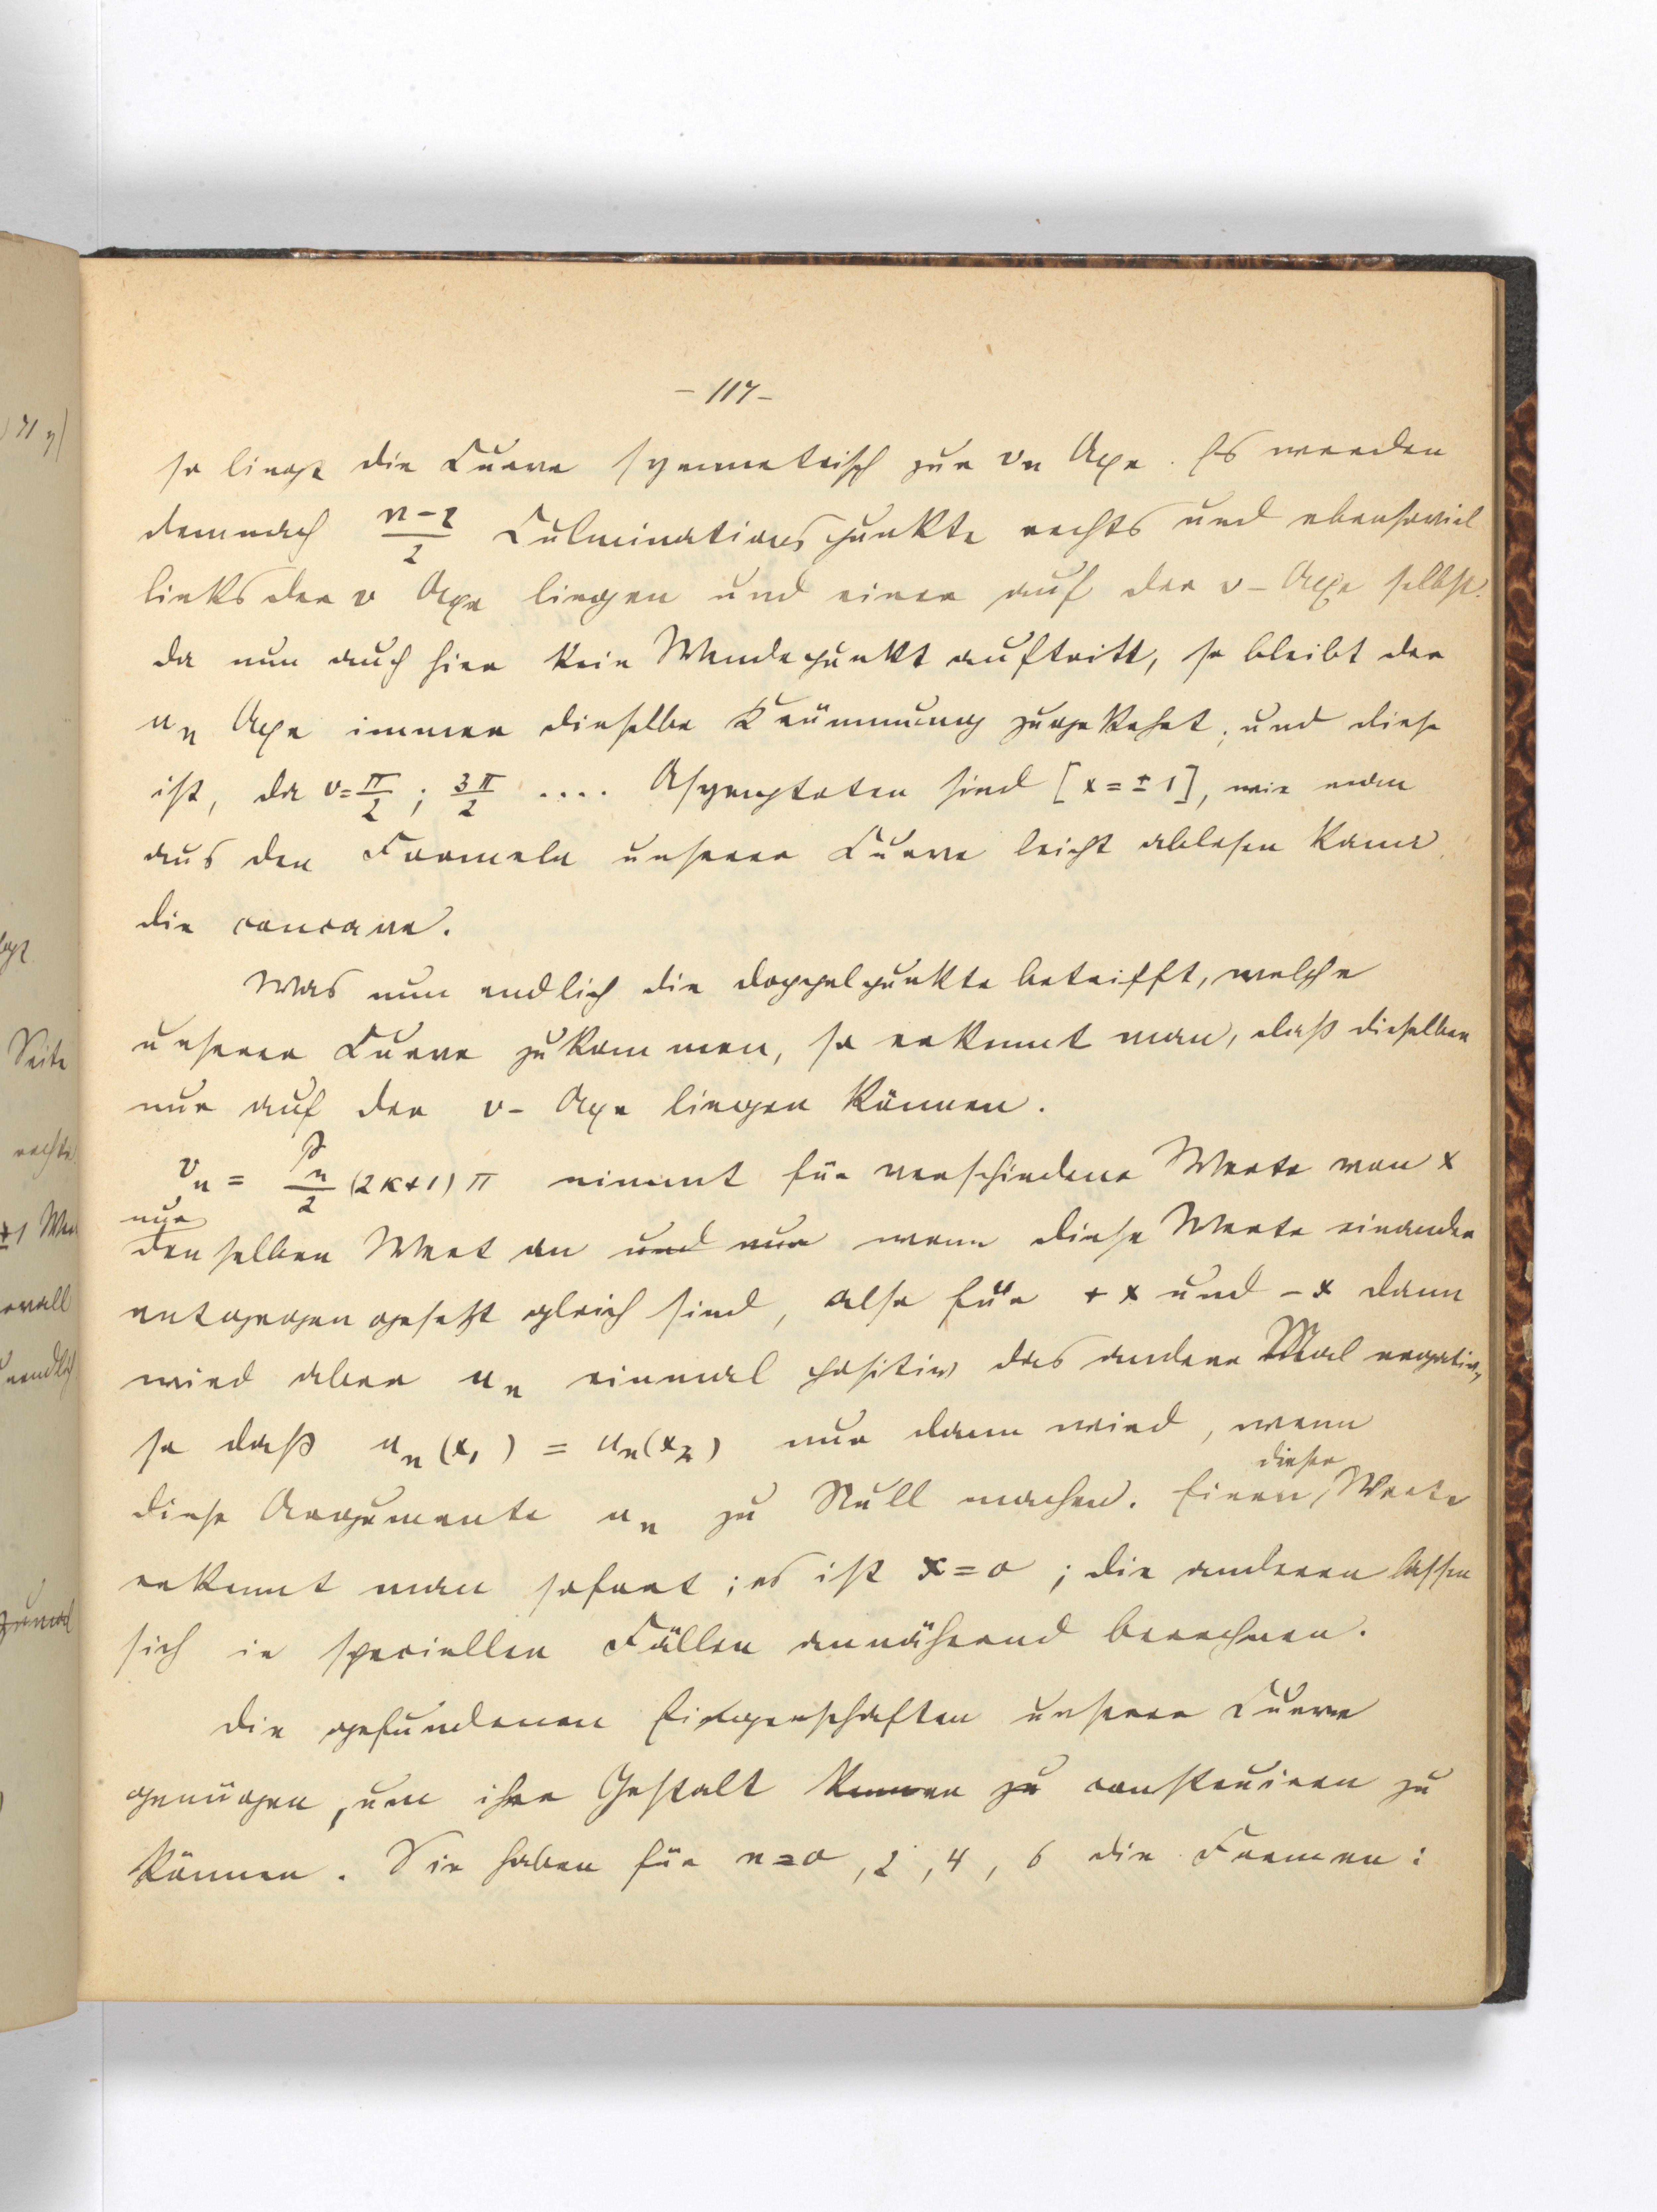 – 117 –
so liegt die Curve symmetrisch zur vₙ Axe. Es werden
demnach (n-2)/2 Culminationspunkte rechts und ebensoviel
links der v Axe liegen und einer auf der v-Axe selbst.
da nun auch hier kein Wendepunkt auftritt, so bleibt der
uₙ Axe immer dieselbe Krümmung zugekehrt; und diese
ist, da v = π/2 ; 3π/2 .... Asymptoten sind [x = ±1], wie man
aus den Formeln unserer Curve leicht ablesen kann,
die concave.
Was nun endlich die Doppelpunkte betrifft, welche
unserer Curve zukommen, so erkennt man, daß dieselben
nur auf der v-Axe liegen können.
vₙ = Pₙ/2 (2k+1) π nimmt für verschiedene Werte von x
nur
denselben Wert an und nur wenn diese Werte einander
entgegengesetzt gleich sind, also für +x und -x dann
wird aber uₙ einmal positiv das andere Mal negativ,
so daß uₙ(x₁) = uₙ(x₂) nur dann wird, wenn
dieser
diese Argumente uₙ zu Null machen. Einen Werte
erkennt man sofort; es ist x=0; die anderen lassen
sich in speciellen Fällen annähernd berechnen.
Die gefundenen Eigenschaften unserer Curve
genügen, um ihre Gestalt zu construiren zu
können. Sie haben für n=0, 2, 4, 6 die Formen:
Seite
rechts
±1